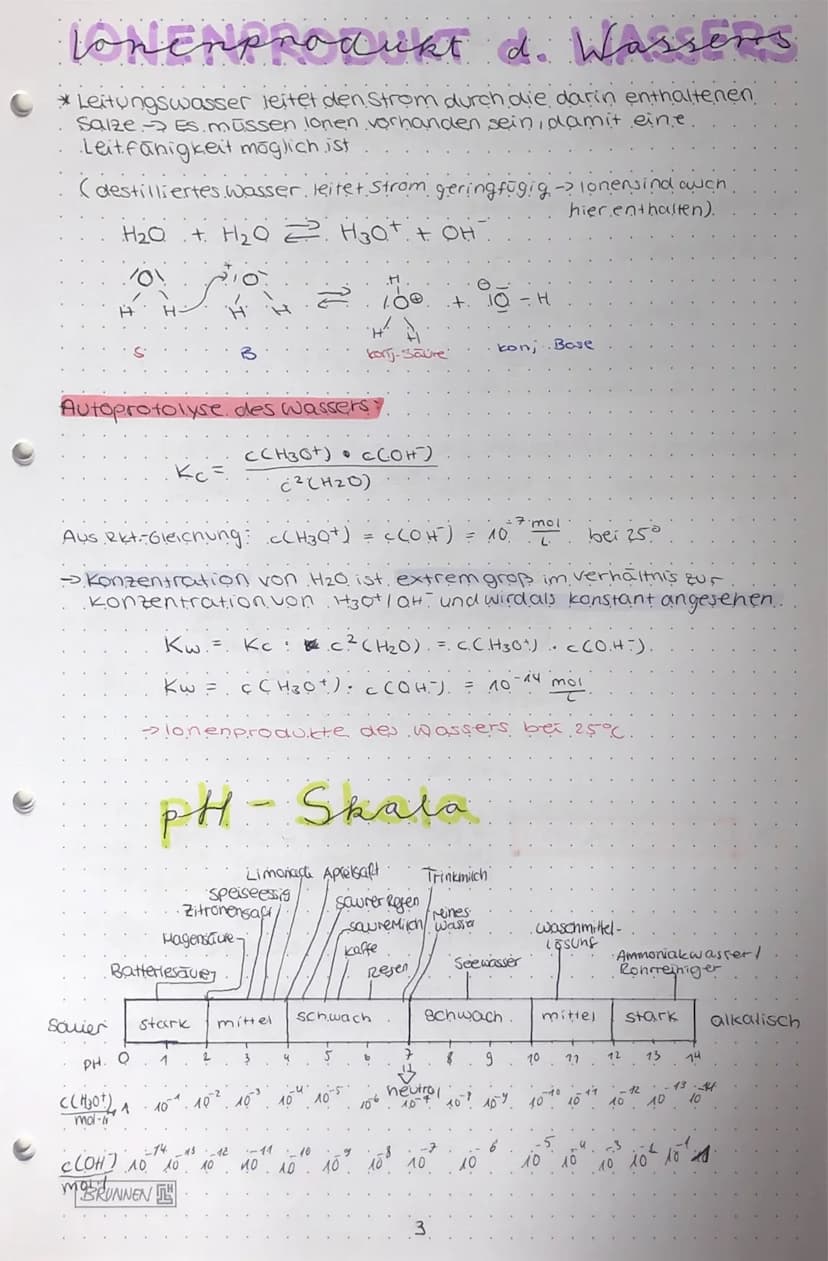 Ionenprodukt d. Wassers
* Leitungswasser leitet den Strom durch die darin enthaltenen
Salze → Es müssen Ionen vorhanden sein, damit eine
Leitfähigkeit möglich ist
(destilliertes Wasser leitet Strom geringfügig → Ionen sind auch
hier enthalten)
H2O + H2O ⇌ H3O⁺ + OH⁻
H H H H ⇌ H O⊕ H H + ⊖ O - H
S B konj. Säure konj. Base
Autoprotolyse des Wassers:
Kc = c(H3O⁺) • c(OH⁻) / c²(H2O)
Aus Rkt.-Gleichung: c(H3O⁺) = c(OH⁻) = 10⁻⁷ mol/L bei 25°
→ Konzentration von H2O ist extrem groß im Verhältnis zur
Konzentration von H3O⁺/OH⁻ und wird als konstant angesehen
Kw = Kc · c²(H2O) = c(H3O⁺) · c(OH⁻)
Kw = c(H3O⁺) · c(OH⁻) = 10⁻¹⁴ mol/L
→ Ionenprodukte des Wassers bei 25°C
pH - Skala
Limonade Apfelsaft Trinkmilch
Speiseessig saurer Regen
Zitronensaft reines
Wasser
saure Milch Waschmittel-
lösung
Magensäure Kaffe
Ammoniakwasser/
Rohrreiniger
Batteriesäure Regen Seewasser
sauer stark mittel schwach schwach mittel stark alkalisch
pH 0 1 2 3 4 5 6 7 8 9 10 11 12 13 14
neutral
c(H3O⁺)/mol·L⁻¹ 1 10⁻¹ 10⁻² 10⁻³ 10⁻⁴ 10⁻⁵ 10⁻⁶ 10⁻⁷ 10⁻⁸ 10⁻⁹ 10⁻¹⁰ 10⁻¹¹ 10⁻¹² 10⁻¹³ 10⁻¹⁴
c(OH⁻)/mol·L 10⁻¹⁴ 10⁻¹³ 10⁻¹² 10⁻¹¹ 10⁻¹⁰ 10⁻⁹ 10⁻⁸ 10⁻⁷ 10⁻⁶ 10⁻⁵ 10⁻⁴ 10⁻³ 10⁻² 10⁻¹ 1
BRUNNEN
3